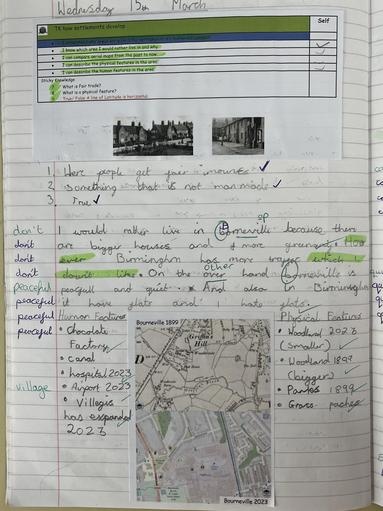 Wednesday 15th March
TK how settlements develop
Self
I know which area I would rather live in and why.
I can compare aerial maps from the past to now.
I can describe the physical features in the area
I can describe the human features in the area
Sticky Knowledge
What is Fair trade?
What is a physical feature?
True/ False A line of Latitude is horizontal
1. Were people get fair
2. Something that is not man made
3. True
sp
don't I would rather live in Borneville because there
don't are bigger houses and more
don't over Birmingham has more which I
don't like. On the other hand Borneville is
peaceful and quiet. And also in Birmingham
peaceful it have flats and I hate flats.
peaceful Human Features Physical Features
Bourneville 1899
Griffin's Hill
• Chocolate Factory
• canal
• hospital 2023
• Airport 2023
village • Villages has expanded 2023
• Woodland 2023 (smaller)
• Woodland 1899 (bigger)
• Parks 1899
• Grass
Bourneville 2023